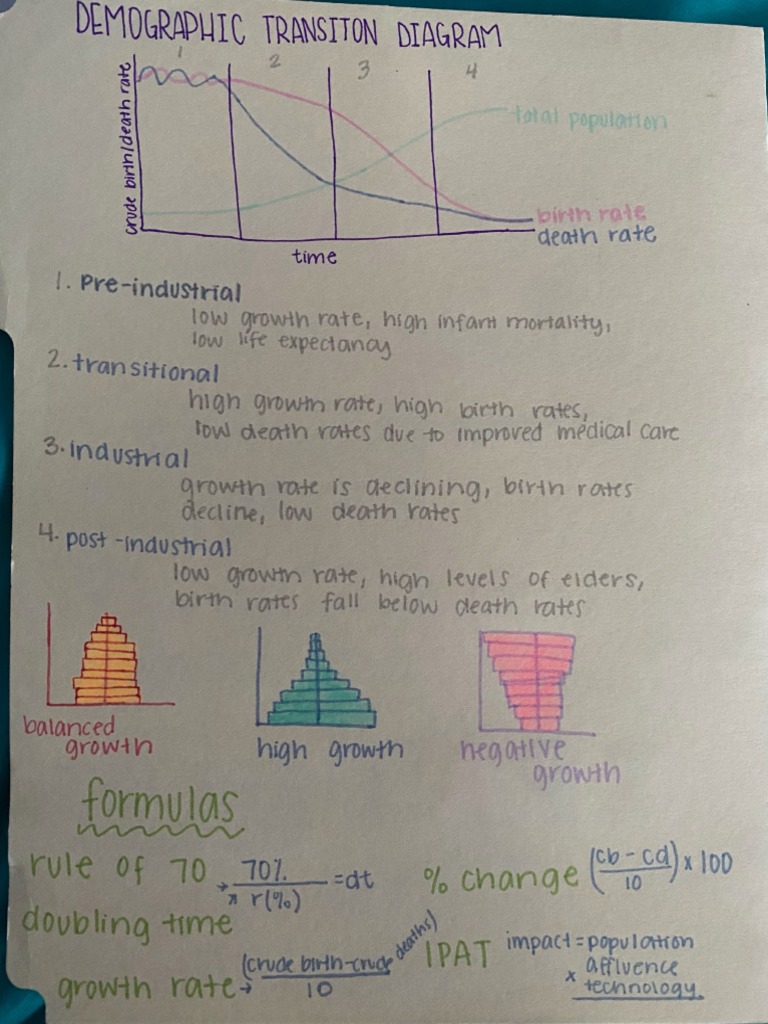 DEMOGRAPHIC TRANSITON DIAGRAM
1 2 3 4
crude birth/death rate
total population
birth rate
death rate
time
1. Pre-industrial
low growth rate, high infant mortality,
low life expectancy
2. transitional
high growth rate, high birth rates,
low death rates due to improved medical care
3. industrial
growth rate is declining, birth rates
decline, low death rates
4. post-industrial
low growth rate, high levels of elders,
birth rates fall below death rates
balanced
growth
high growth
negative
growth
formulas
rule of 70 → 70% / r(%) = dt
doubling time
% change (cb - cd / 10) x 100
growth rate → (crude birth-crude deaths) / 10
IPAT impact = population
x affluence
technology